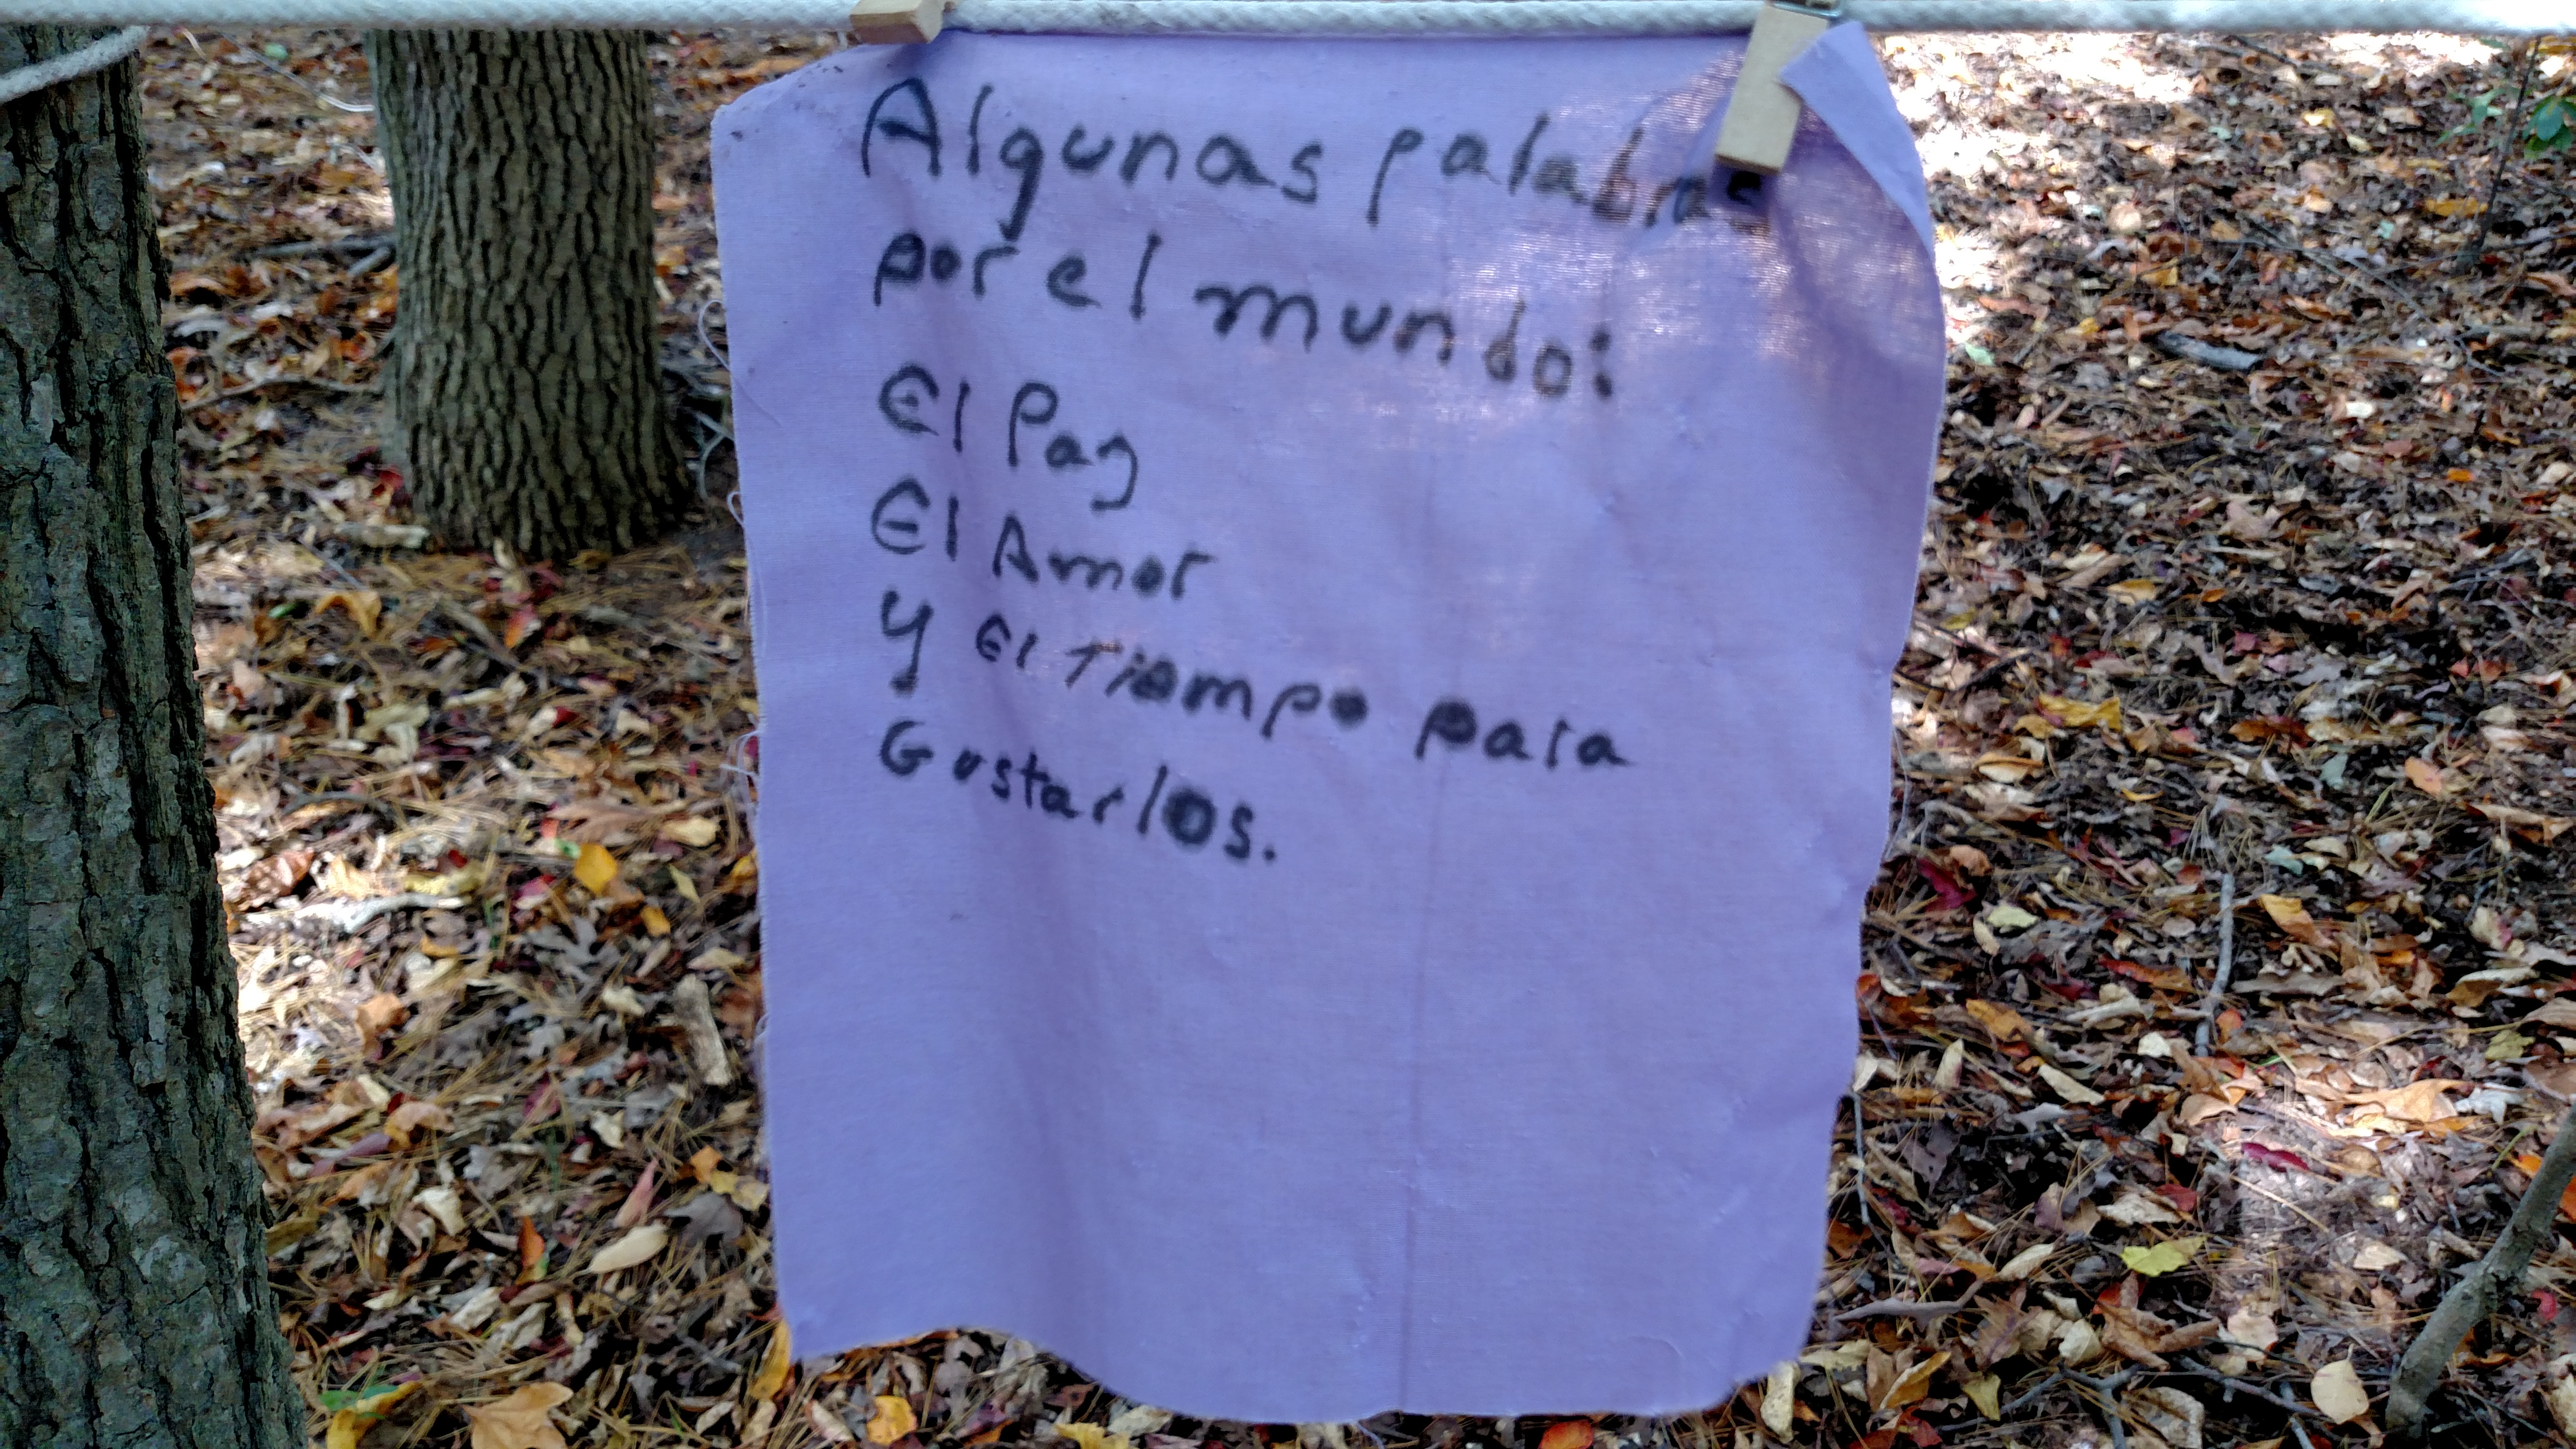 Algunas palabras
por el mundo:
El Paz
El Amor
y El Tiempo para
Gustarlos.